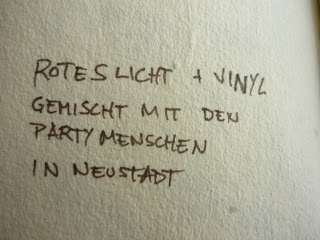 ROTES LICHT + VINYL
GEMISCHT MIT DEN
PARTY MENSCHEN
IN NEUSTADT